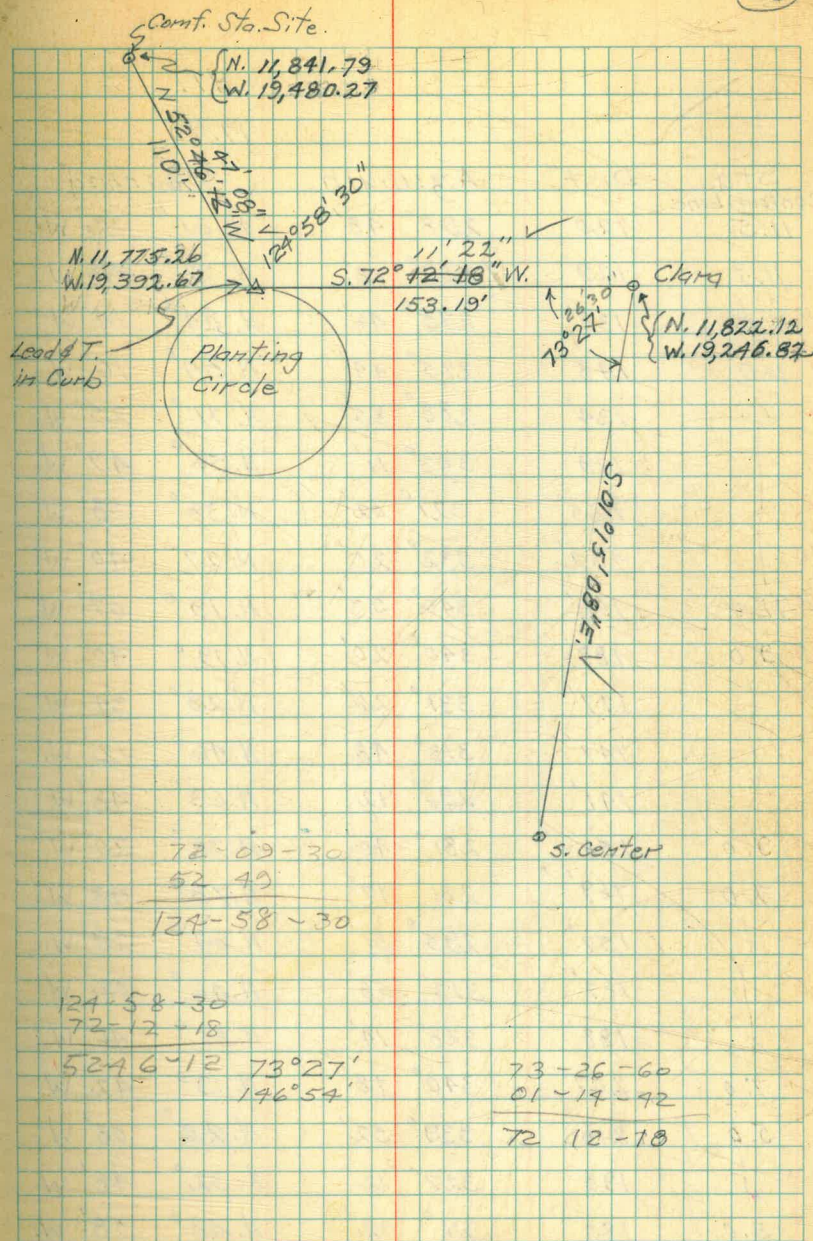 Comf. Sta. Site.
N. 11,841.79
W. 19,480.27
N 52° 46' 12" W
47' 08"
110'
124° 58' 30"
N. 11,775.26
W. 19,392.67
11' 22"
S. 72° 12' 18" W.
153.19'
Clara
26' 30"
73° 27'
N. 11,822.12
W. 19,246.82
Lead & T.
in Curb
Planting
Circle
S. 01° 15' 08" E.
S. Center
72-09-30
52 49
124-58-30
124-58-30
72-12-18
52 46-12
73° 27'
146° 54'
73-26-60
01-14-42
72 12-18